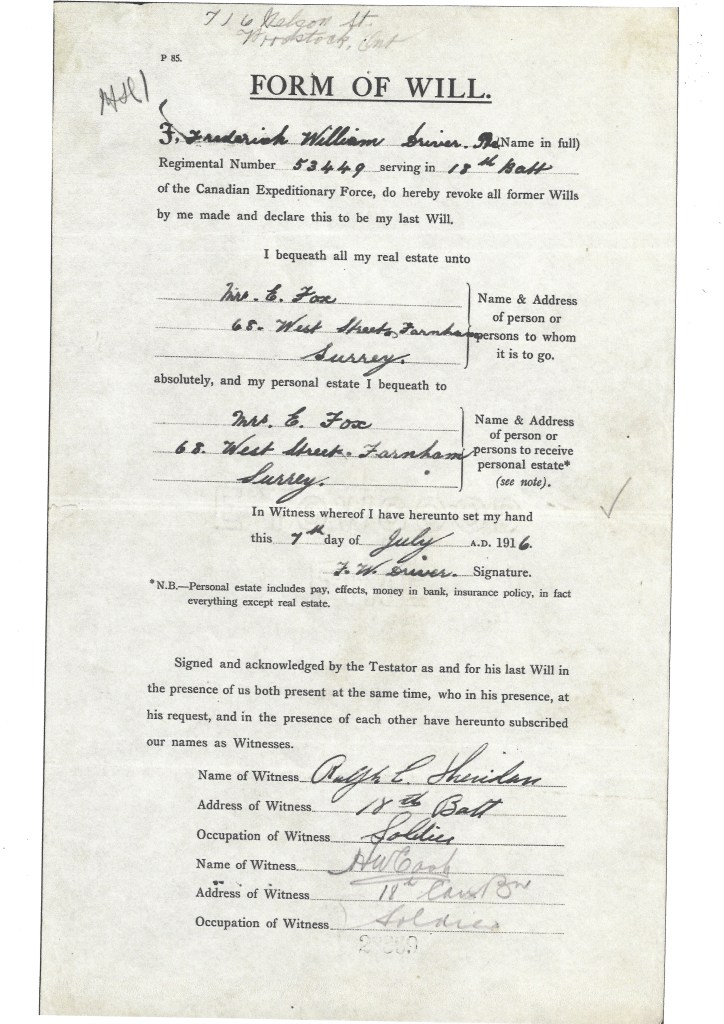 716 Nelson St.
Woodstock, Ont
P 85.
FORM OF WILL.
I, Frederick William Driver. Pte (Name in full)
Regimental Number 53449 serving in 18th Batt
of the Canadian Expeditionary Force, do hereby revoke all former Wills
by me made and declare this to be my last Will.
I bequeath all my real estate unto
Mrs. E. Fox
68. West Street, Farnham
Surrey.
Name & Address
of person or
persons to whom
it is to go.
absolutely, and my personal estate I bequeath to
Mrs. E. Fox
68. West Street. Farnham
Surrey.
Name & Address
of person or
persons to receive
personal estate*
(see note).
In Witness whereof I have hereunto set my hand
this 7th day of July A.D. 1916.
F. W. Driver. Signature.
*N.B.—Personal estate includes pay, effects, money in bank, insurance policy, in fact
everything except real estate.
Signed and acknowledged by the Testator as and for his last Will in
the presence of us both present at the same time, who in his presence, at
his request, and in the presence of each other have hereunto subscribed
our names as Witnesses.
Name of Witness Ralph E. Sheridan
Address of Witness 18th Batt
Occupation of Witness Soldier
Name of Witness HW Cook
Address of Witness 18th Can Bn
Occupation of Witness Soldier